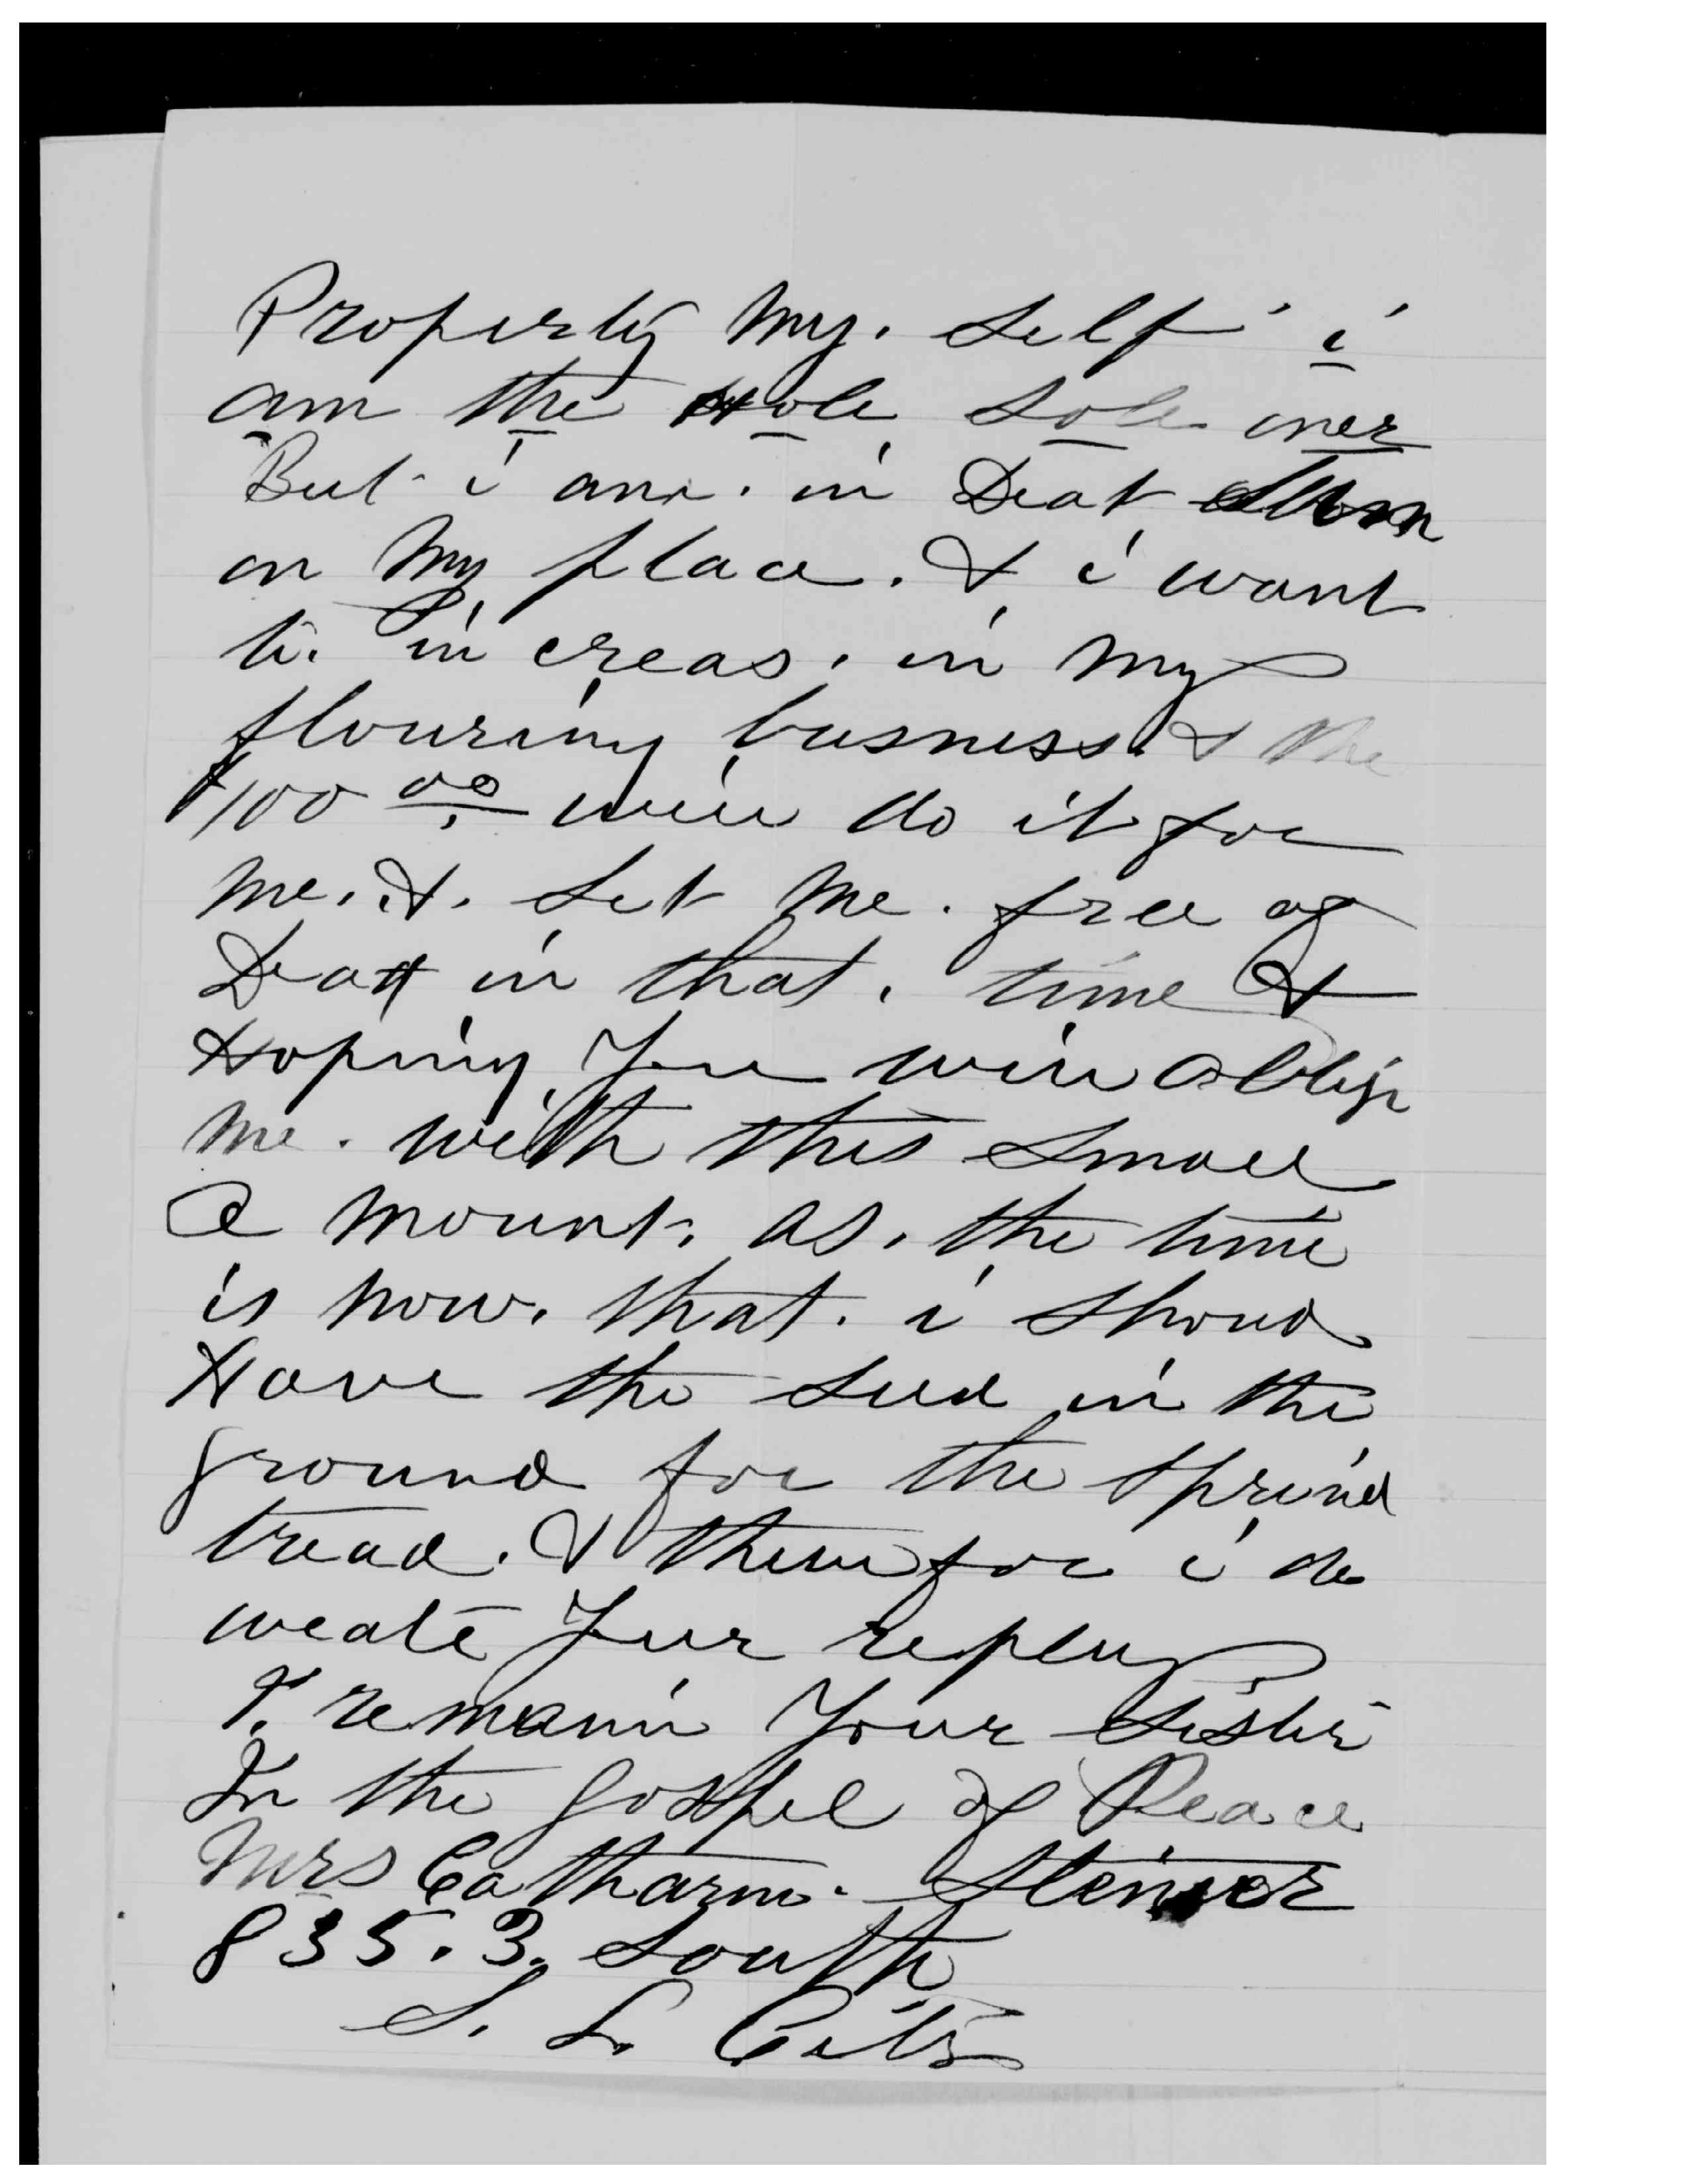 Property my. self i
am the Hole Sole oner
But i am. in Deat
on my place. & i want
to. in creas. in my
flouring busness. & the
$100 00 will do it for
me. &. Set me. free of
Deat in that. time &
Hoping you will oblige
me. with this small
A mount. as. the time
is now. that. i shoud
Have the seed in the
ground for the Sprind
tread. & therefor i do
weate Your repley
I. remain Your Sister
In the gospel of Peace
Mrs Catharin. Steiner
835. 3. South
S. L. City